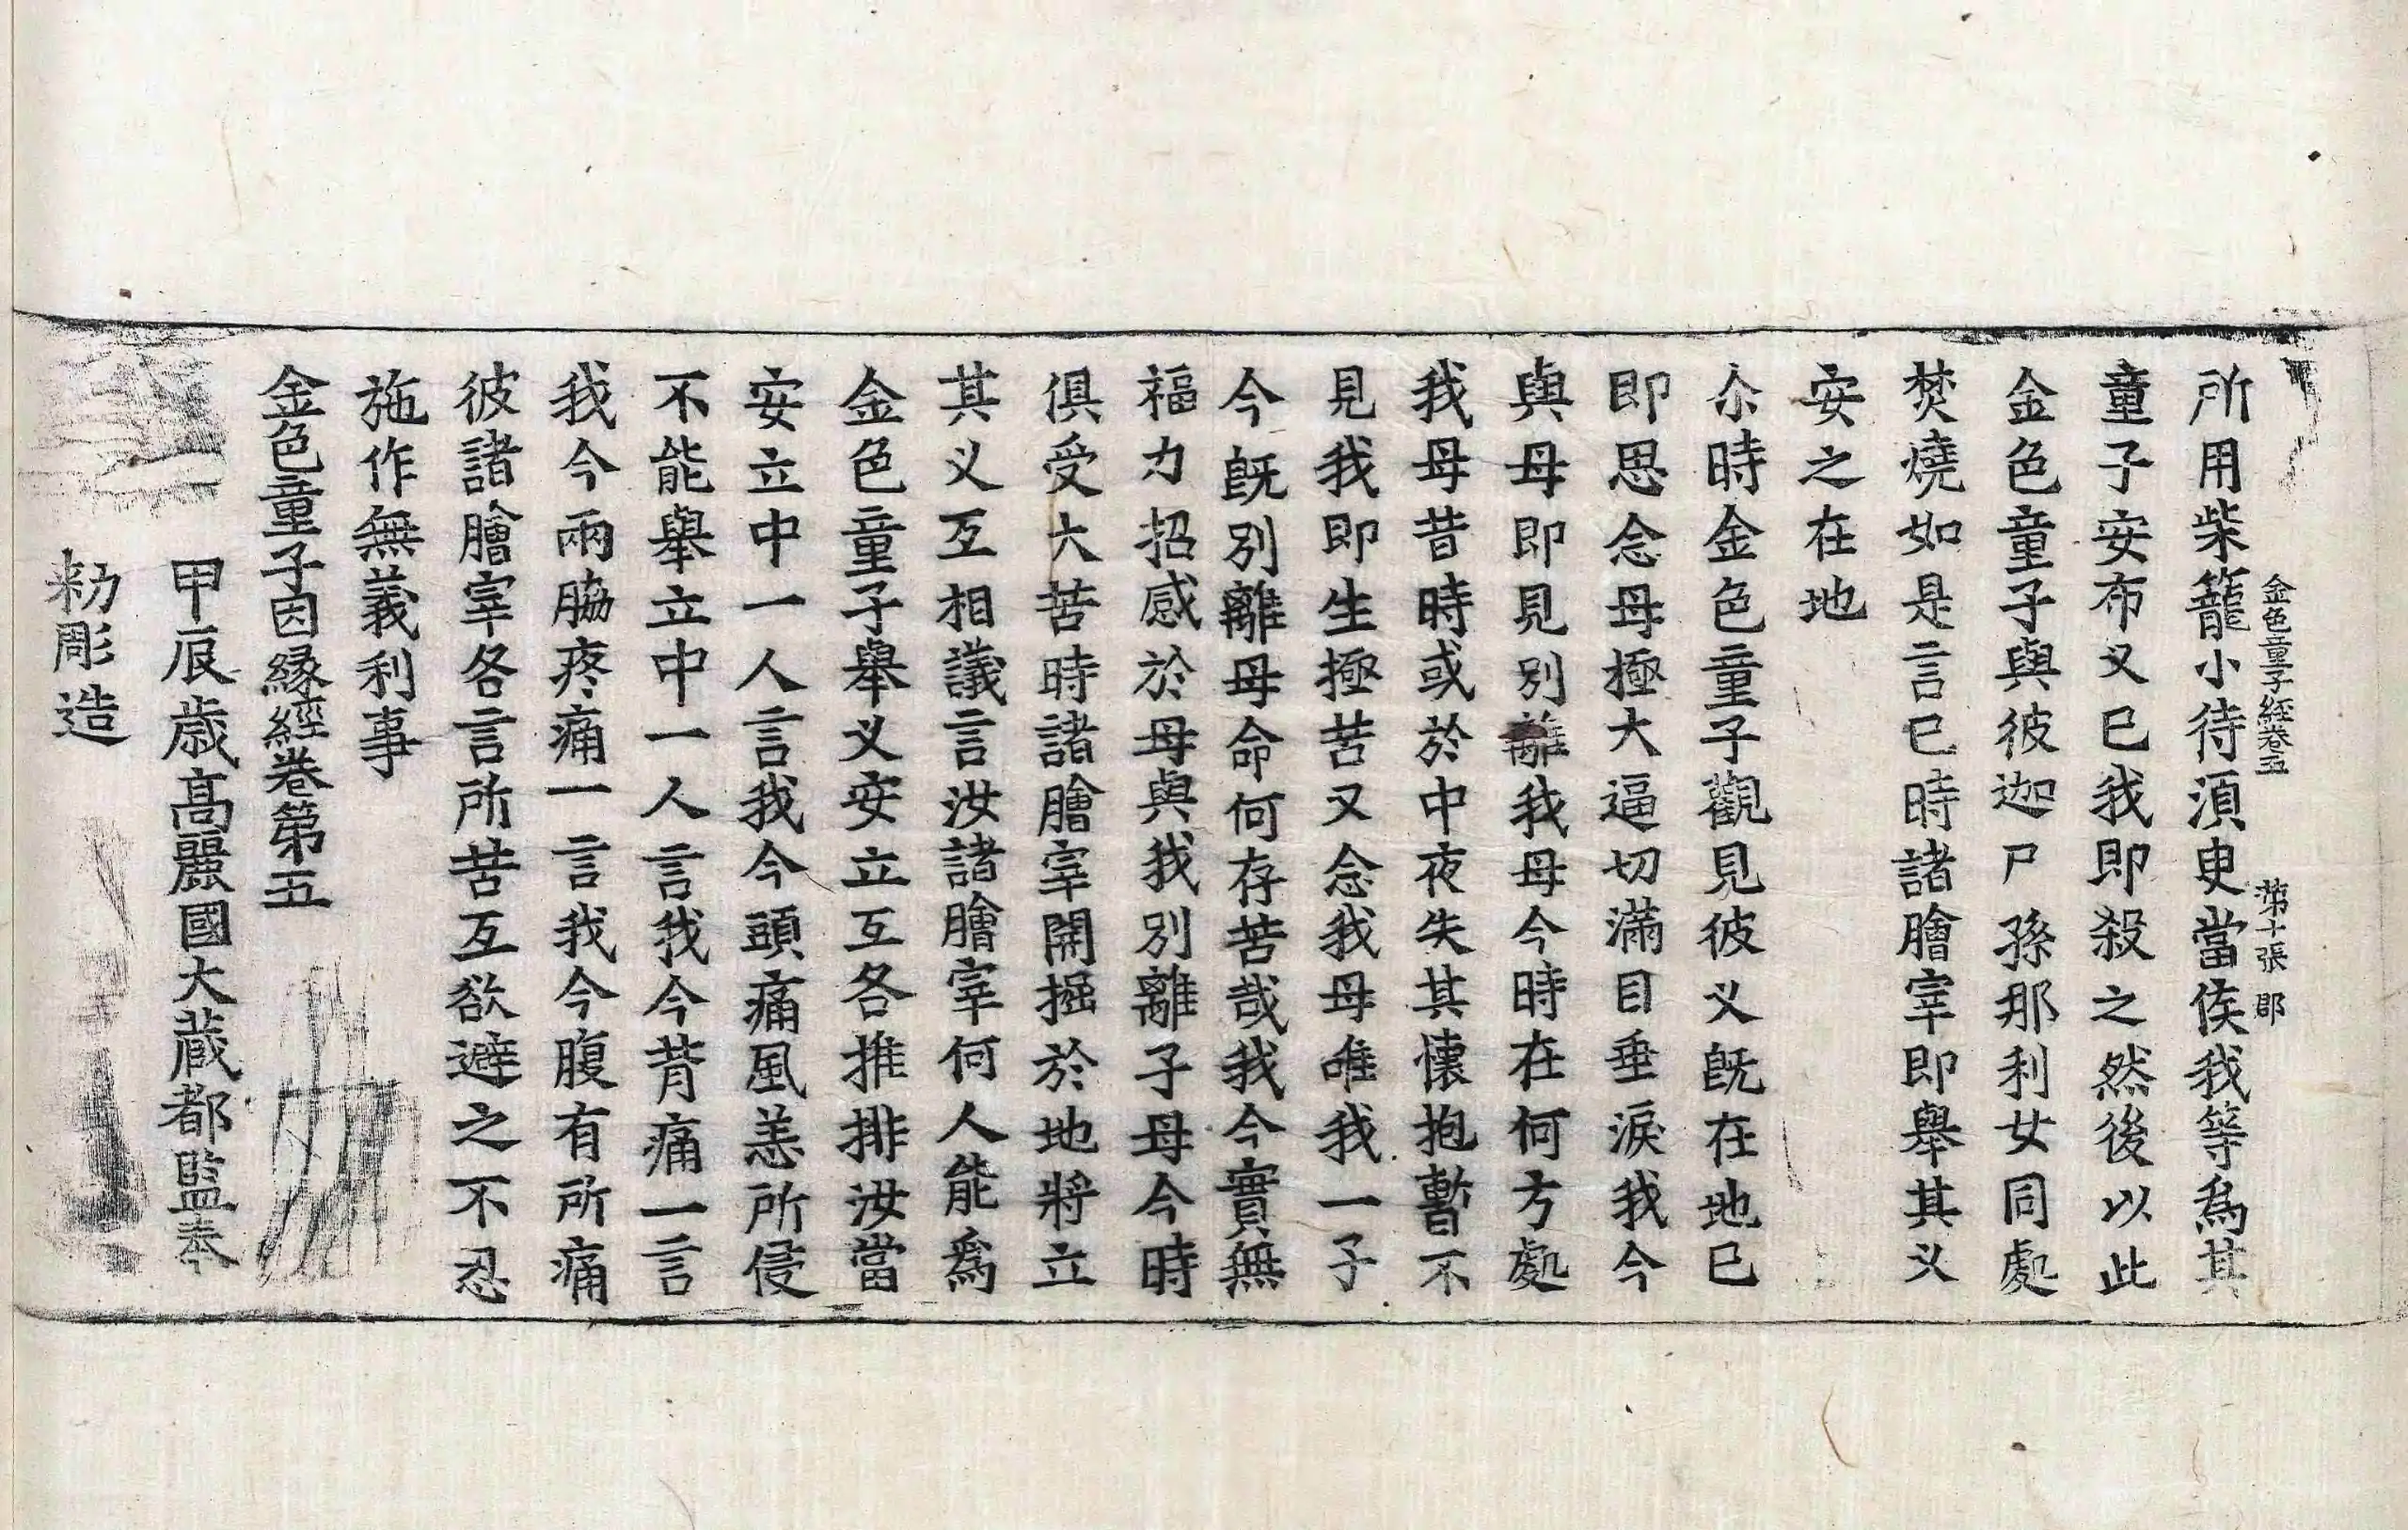 金色童子經卷五 第十張 郡
所用柴籠小待湏臾當俟我等爲其
童子安布义已我即殺之然後以此
金色童子與彼迦尸孫那利女同處
焚燒如是言已時諸膾宰即舉其义
安之在地
尒時金色童子觀見彼义旣在地已
即思念母極大逼切滿目垂淚我今
與母即見別離我母今時在何方處
我母昔時或於中夜失其懷抱暫不
見我即生極苦又念我母唯我一子
今旣別離母命何存苦哉我今實無
福力招感於母與我別離子母今時
俱受大苦時諸膾宰開掘於地將立
其义互相議言汝諸膾宰何人能爲
金色童子舉义安立互各推排汝當
安立中一人言我今頭痛風恙所侵
不能舉立中一人言我今背痛一言
我今兩脇疼痛一言我今腹有所痛
彼諸膾宰各言所苦互欲避之不忍
施作無義利事
金色童子因緣經卷第五
甲辰歲高麗國大藏都監奉
勑彫造